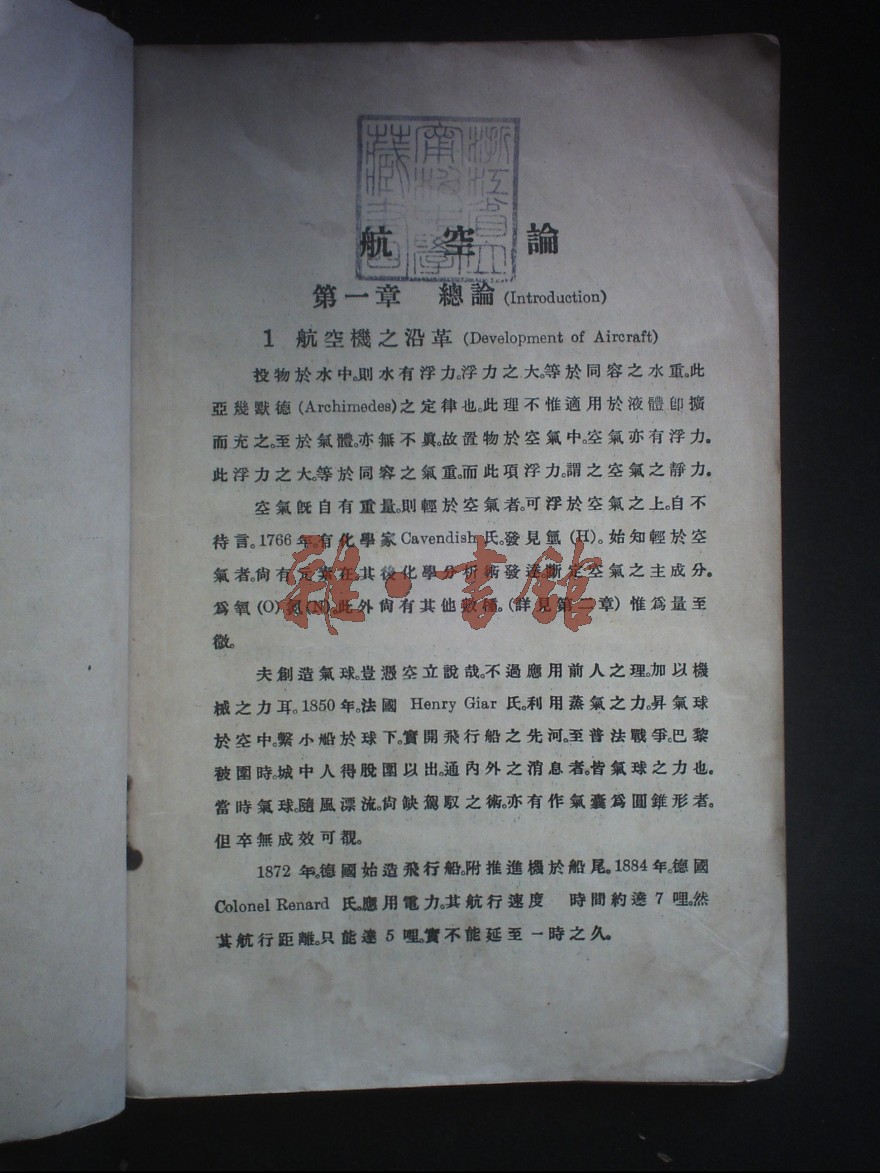 浙江省立
甯波中學
藏書圖
航空論
第一章 總論 (Introduction)
1 航空機之沿革 (Development of Aircraft)
投物於水中。則水有浮力。浮力之大。等於同容之水重。此
亞幾默德 (Archimedes) 之定律也。此理不惟適用於液體卽擴
而充之。至於氣體。亦無不眞。故置物於空氣中。空氣亦有浮力。
此浮力之大。等於同容之氣重。而此項浮力。謂之空氣之靜力。
空氣旣自有重量。則輕於空氣者。可浮於空氣之上。自不
待言。1766 年。有化學家 Cavendish 氏。發見氫 (H)。始知輕於空
氣者。尙有元素在。其後化學分析術發達。斷定空氣之主成分。
爲氧 (O) 氮 (N)。此外尙有其他數種。(詳見第二章) 惟爲量至
微。
夫創造氣球。豈憑空立說哉。不過應用前人之理。加以機
械之力耳。1850 年。法國 Henry Giar 氏。利用蒸氣之力。昇氣球
於空中。繫小船於球下。實開飛行船之先河。至普法戰爭。巴黎
被圍時。城中人得脫圍以出。通內外之消息者。皆氣球之力也。
當時氣球。隨風漂流。尙缺駕馭之術。亦有作氣囊爲圓錐形者。
但卒無成效可覩。
1872 年。德國始造飛行船。附推進機於船尾。1884 年。德國
Colonel Renard 氏。應用電力。其航行速度 時間約達 7 哩。然
其航行距離。只能達 5 哩。實不能延至一時之久。
雅·書館